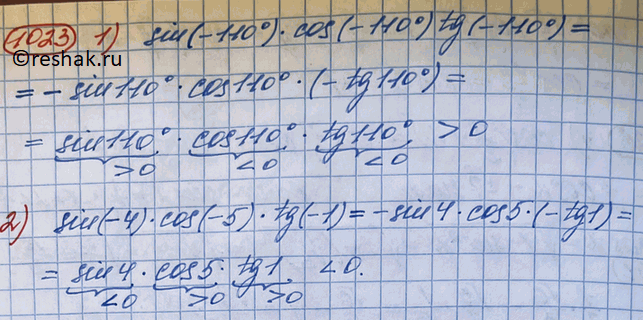 1023 1) sin(-110°)·cos(-110°)tg(-110°)=
©reshak.ru
= -sin110°·cos110°·(-tg110°)=
= sin110°·cos110°·tg110° >0
>0 <0 <0
2) sin(-4)·cos(-5)·tg(-1)=-sin4·cos5·(-tg1)=
= sin4·cos5·tg1 <0.
<0 >0 >0